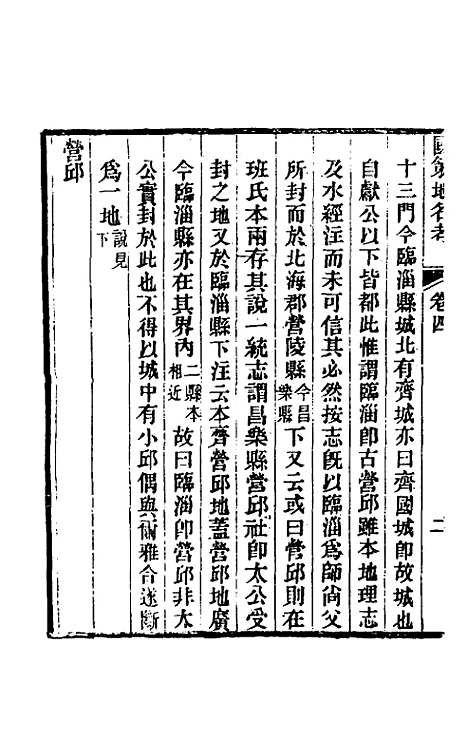 國策地名考 卷四 二
十三門今臨淄縣城北有齊城亦曰齊國城卽故城也
自獻公以下皆都此惟謂臨淄卽古營邱雖本地理志
及水經注而未可信其必然按志旣以臨淄爲師尙父
所封而於北海郡營陵縣今昌樂縣下又云或曰營邱則在
班氏本兩存其說一統志謂昌樂縣營邱社卽太公受
封之地又於臨淄縣下注云本齊營邱地蓋營邱地廣
今臨淄縣亦在其界內二縣本相近故曰臨淄卽營邱非太
公實封於此也不得以城中有小邱偶與爾雅合遂斷
爲一地說見下
營邱